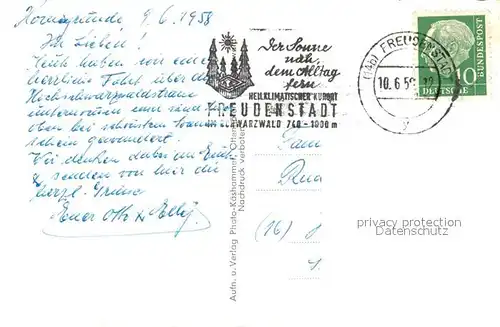 Hornisgrinde 9.6.1958
Ihr Lieben!
Euch haben wir eine
herrliche Fahrt über die
Hochschwarzwaldstrasse
unternommen und sind
oben bei schönstem Sonnen-
schein gewandert.
Wir denken dabei an Euch
& senden von hier die
herzl. Grüsse
Euer Otto & Elly.
Der Sonne
nah,
dem Alltag
fern
HEILKLIMATISCHER KURORT
FREUDENSTADT
IM SCHWARZWALD 740-1000 m
(14b) FREUDENSTADT
10.6.58
y
10
DEUTSCHE
BUNDESPOST
Aufn. u. Verlag Photo-Kashammer, Otten
Nachdruck verboten
(16)
privacy protection